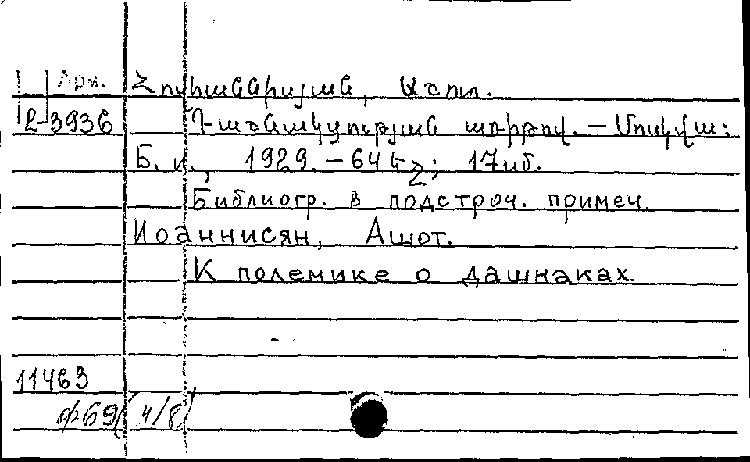 Арм. Հովհաննիսյան, Աշոտ.
12-3936 Դաշնակցության առթիվ. — Մոսկվա:
Б. и., 1929. — 64 էջ; 17սմ.
Библиогр. в подстроч. примеч.
Иоаннисян, Ашот.
К полемике о дашнаках.
11463
ф69 4/8